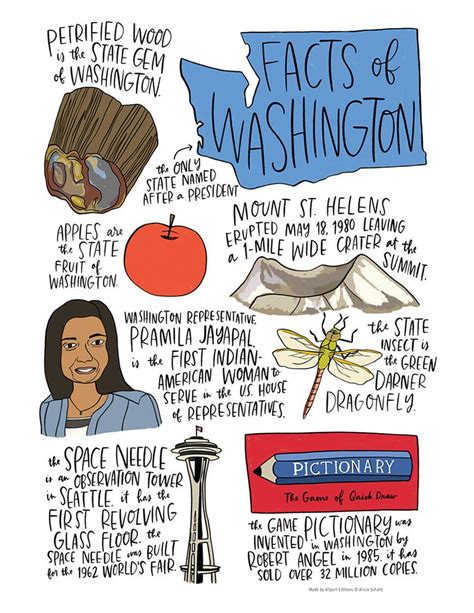 PETRIFIED WOOD
is the STATE GEM
of WASHINGTON.
FACTS of
WASHINGTON
the ONLY
STATE NAMED
AFTER a PRESIDENT
APPLES are
the STATE
FRUIT of
WASHINGTON.
MOUNT ST. HELENS
ERUPTED MAY 18, 1980 LEAVING
a 1-MILE WIDE CRATER at the
SUMMIT.
WASHINGTON REPRESENTATIVE,
PRAMILA JAYAPAL,
is the FIRST INDIAN-
AMERICAN WOMAN to
SERVE in the U.S. HOUSE
of REPRESENTATIVES.
the STATE
INSECT is
the GREEN
DARNER
DRAGONFLY.
the SPACE NEEDLE
is an OBSERVATION TOWER
in SEATTLE. it has the
FIRST REVOLVING
GLASS FLOOR. the
SPACE NEEDLE was BUILT
for the 1962 WORLD'S FAIR.
PICTIONARY
The Game of Quick Draw
the GAME PICTIONARY was
INVENTED in WASHINGTON by
ROBERT ANGEL in 1985. it has
SOLD OVER 32 MILLION COPIES.
Made by Allport Editions © Alicia Schultz